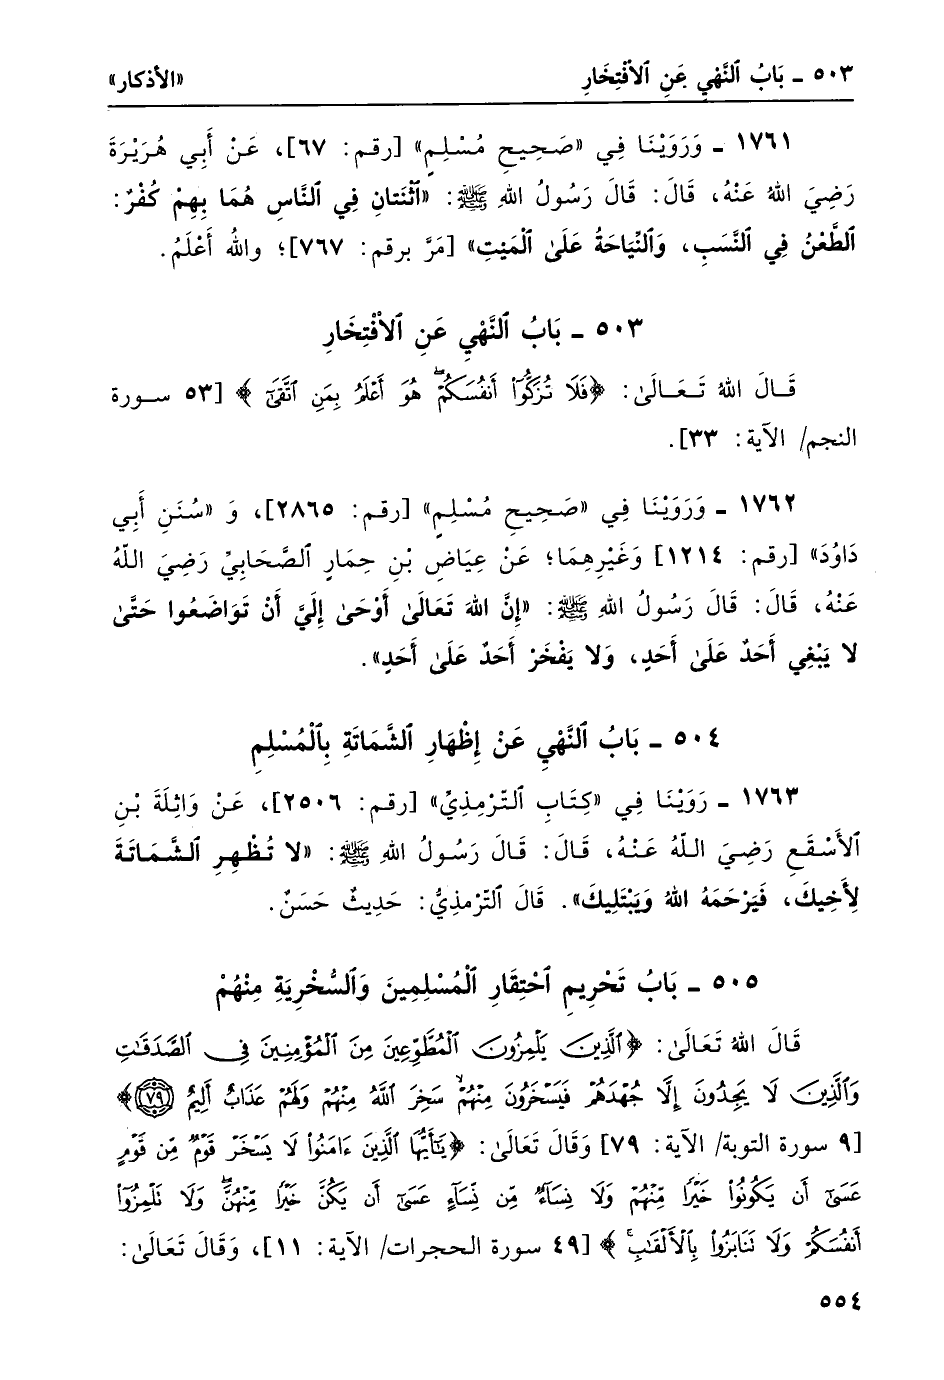 ٥٠٣ ـ بَابُ ٱلنَّهْيِ عَنِ ٱلاِفْتِخَارِ
«الأذكار»
١٧٦١ ـ وَرَوَيْنَا فِي «صَحِيحِ مُسْلِمٍ» [رقم: ٦٧]، عَنْ أَبِي هُرَيْرَةَ
رَضِيَ اللهُ عَنْهُ، قَالَ: قَالَ رَسُولُ اللهِ ﷺ: «ٱثْنَتانِ فِي ٱلنَّاسِ هُمَا بِهِمْ كُفْرٌ:
ٱلطَّعْنُ فِي ٱلنَّسَبِ، وَٱلنِّيَاحَةُ عَلَىٰ ٱلْمَيْتِ» [مَرَّ برقم: ٧٦٧]؛ واللهُ أَعْلَمُ.
٥٠٣ ـ بَابُ ٱلنَّهْيِ عَنِ ٱلاِفْتِخَارِ
قَـالَ اللهُ تَـعَـالَىٰ: ﴿فَلَا تُزَكُّوٓا۟ أَنفُسَكُمْ ۖ هُوَ أَعْلَمُ بِمَنِ ٱتَّقَىٰٓ﴾ [٥٣ سـورة
النجم/ الآية: ٣٣].
١٧٦٢ ـ وَرَوَيْنَا فِي «صَحِيحِ مُسْلِمٍ» [رقم: ٢٨٦٥]، وَ «سُنَنِ أَبِي
دَاوُدَ» [رقم: ١٢١٤] وَغَيْرِهِمَا؛ عَنْ عِيَاضِ بْنِ حِمَارٍ ٱلصَّحَابِيِّ رَضِيَ اللّهُ
عَنْهُ، قَالَ: قَالَ رَسُولُ اللهِ ﷺ: «إِنَّ اللهَ تَعَالَىٰ أَوْحَىٰ إِلَيَّ أَنْ تَوَاضَعُوا حَتَّىٰ
لا يَبْغِي أَحَدٌ عَلَىٰ أَحَدٍ، وَلا يَفْخَرْ أَحَدٌ عَلَىٰ أَحَدٍ».
٥٠٤ ـ بَابُ ٱلنَّهْيِ عَنْ إِظْهَارِ ٱلشَّمَاتَةِ بِٱلْمُسْلِمِ
١٧٦٣ ـ رَوَيْنَا فِي «كِتَابِ ٱلتِّرْمِذِيِّ» [رقم: ٢٥٠٦]، عَنْ وَاثِلَةَ بْنِ
ٱلأَسْقَعِ رَضِيَ اللّهُ عَنْهُ، قَالَ: قَالَ رَسُولُ اللهِ ﷺ: «لا تُظْهِرِ ٱلشَّمَاتَةَ
لِأَخِيكَ، فَيَرْحَمَهُ اللهُ وَيَبْتَلِيكَ». قَالَ ٱلتِّرْمِذِيُّ: حَدِيثٌ حَسَنٌ.
٥٠٥ ـ بَابُ تَحْرِيمِ ٱحْتِقَارِ ٱلْمُسْلِمِينَ وَٱلسُّخْرِيَةِ مِنْهُمْ
قَالَ اللهُ تَعَالَىٰ: ﴿ٱلَّذِينَ يَلْمِزُونَ ٱلْمُطَّوِّعِينَ مِنَ ٱلْمُؤْمِنِينَ فِى ٱلصَّدَقَٰتِ
وَٱلَّذِينَ لَا يَجِدُونَ إِلَّا جُهْدَهُمْ فَيَسْخَرُونَ مِنْهُمْ ۙ سَخِرَ ٱللَّهُ مِنْهُمْ وَلَهُمْ عَذَابٌ أَلِيمٌ ۝٧٩﴾
[٩ سورة التوبة/ الآية: ٧٩] وَقَالَ تَعَالَىٰ: ﴿يَٰٓأَيُّهَا ٱلَّذِينَ ءَامَنُوا۟ لَا يَسْخَرْ قَوْمٌ مِّن قَوْمٍ
عَسَىٰٓ أَن يَكُونُوا۟ خَيْرًا مِّنْهُمْ وَلَا نِسَآءٌ مِّن نِّسَآءٍ عَسَىٰٓ أَن يَكُنَّ خَيْرًا مِّنْهُنَّ ۖ وَلَا تَلْمِزُوٓا۟
أَنفُسَكُمْ وَلَا تَنَابَزُوا۟ بِٱلْأَلْقَٰبِ ۖ﴾ [٤٩ سورة الحجرات/ الآية: ١١]، وَقَالَ تَعَالَىٰ:
٥٥٤